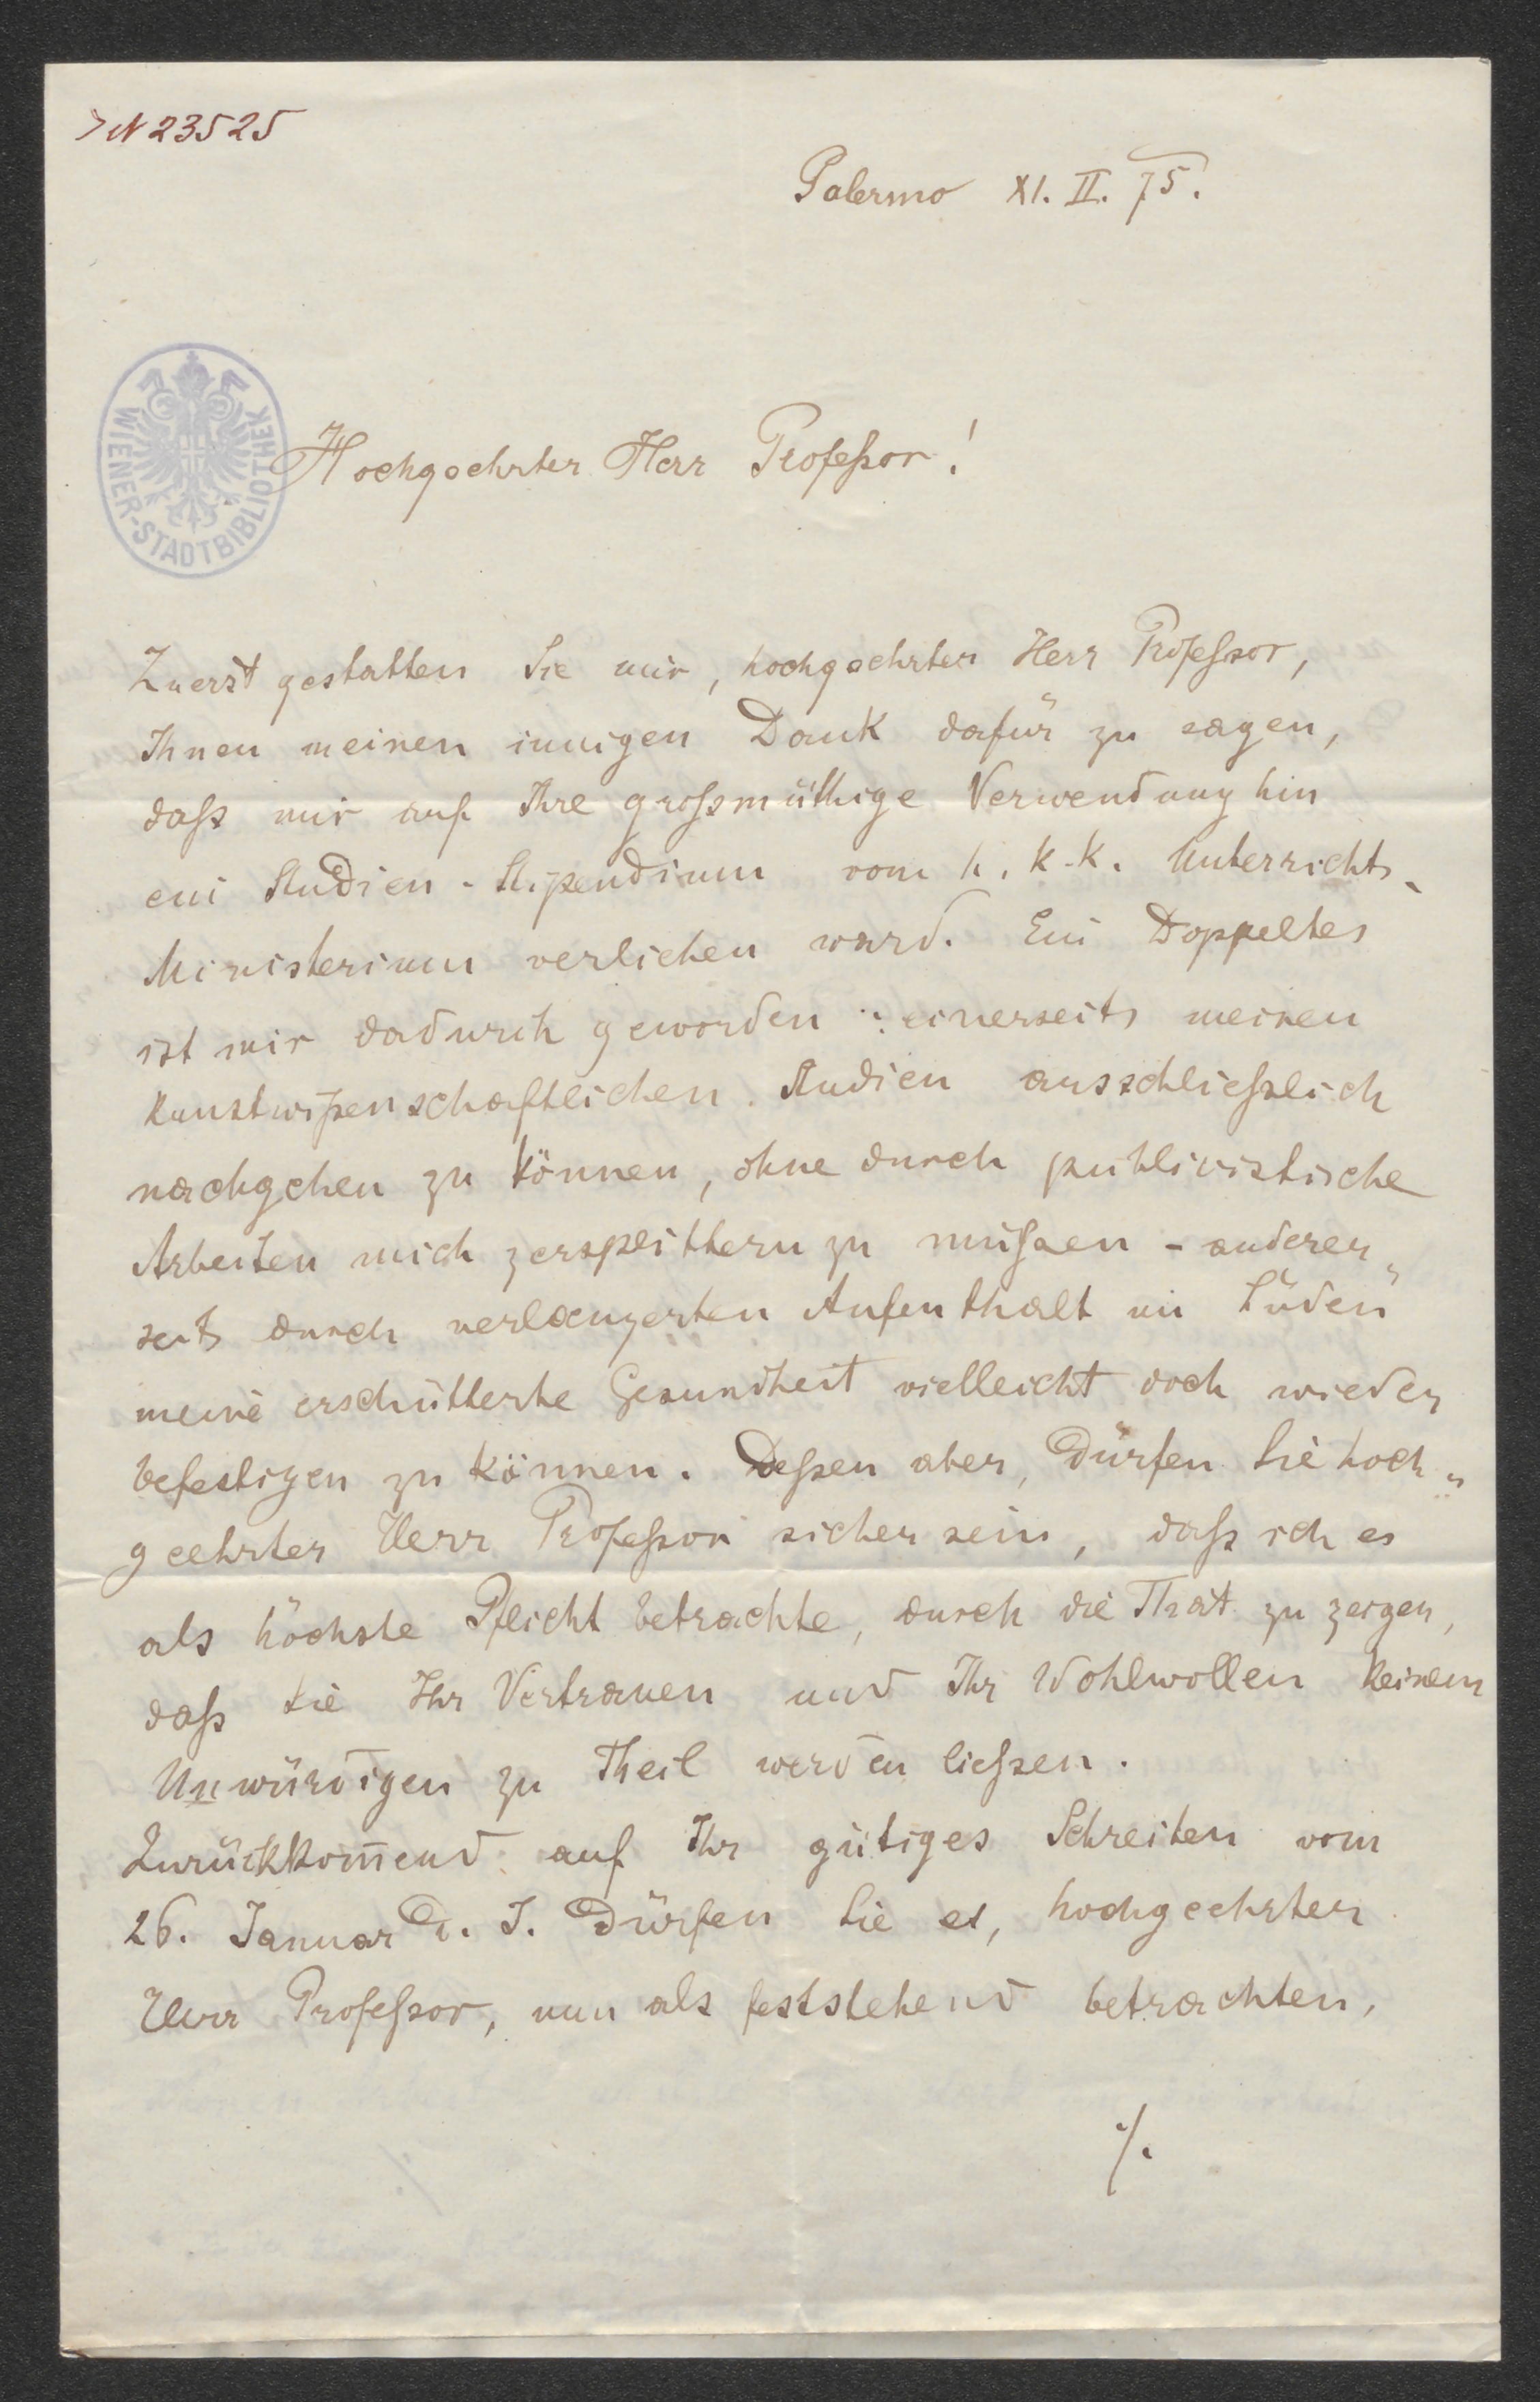 IN 23525
Palermo XI. II. 75.
WIENER-STADTBIBLIOTHEK
Hochgeehrter Herr Profeßor!
Zuerst gestatten Sie mir, hochgeehrter Herr Profeßor,
Ihnen meinen innigen Dank dafür zu sagen,
daß mir auf Ihre großmüthige Verwendung hin
ein Studien-Stipendium vom h. k. k. Unterrichts-
Ministerium verliehen ward. Ein Doppeltes
ist mir dadurch geworden: einerseits meinen
kunstwißenschaftlichen Studien ausschließlich
nachgehen zu können, ohne durch publicistische
Arbeiten mich zersplittern zu müßen - anderer„
seits durch verlaengerten Aufenthalt im Süden
meine erschütterte Gesundheit vielleicht doch wieder
befestigen zu können. Deßen aber, dürfen Sie hoch„
geehrter Herr Profeßor sicher sein, daß ich es
als höchste Pflicht betrachte, durch die That zu zeigen,
daß Sie Ihr Vertrauen und Ihr Wohlwollen keinem
Unwürdigen zu Theil werden ließen.
Zurückkom̄end auf Ihr gütiges Schreiben vom
26. Januar d. J. dürfen Sie es, hochgeehrter
Herr Profeßor, nun als feststehend betrachten,
./.